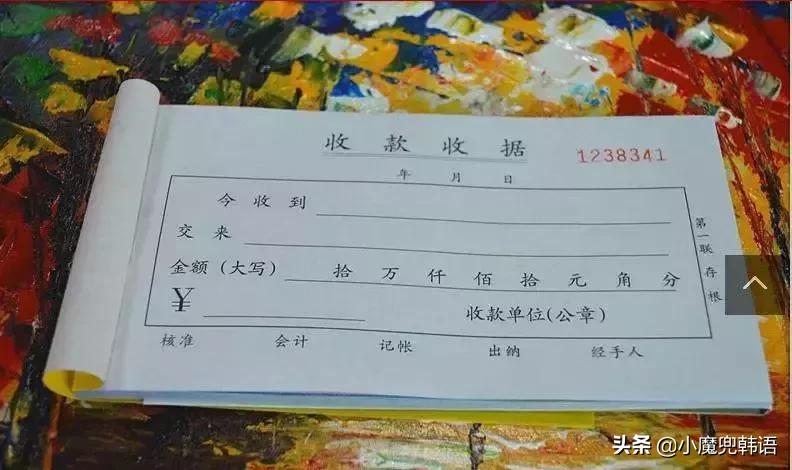 收款收据 1238341
年 月 日
今收到
交来
金额（大写） 拾 万 仟 佰 拾 元 角 分
¥ 收款单位(公章)
第一联存根
核准 会计 记帐 出纳 经手人
头条 @小魔兜韩语